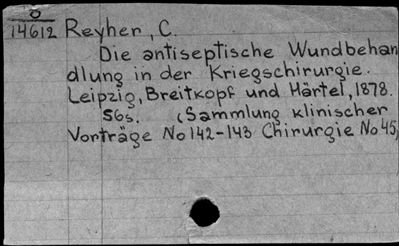 O
14612 Reyher, C.
Die antiseptische Wundbehan
dlung in der Kriegschirurgie.
Leipzig, Breitkopf und Härtel, 1878.
56s. (Sammlung klinischer
Vorträge No 142-143 Chirurgie No 45)